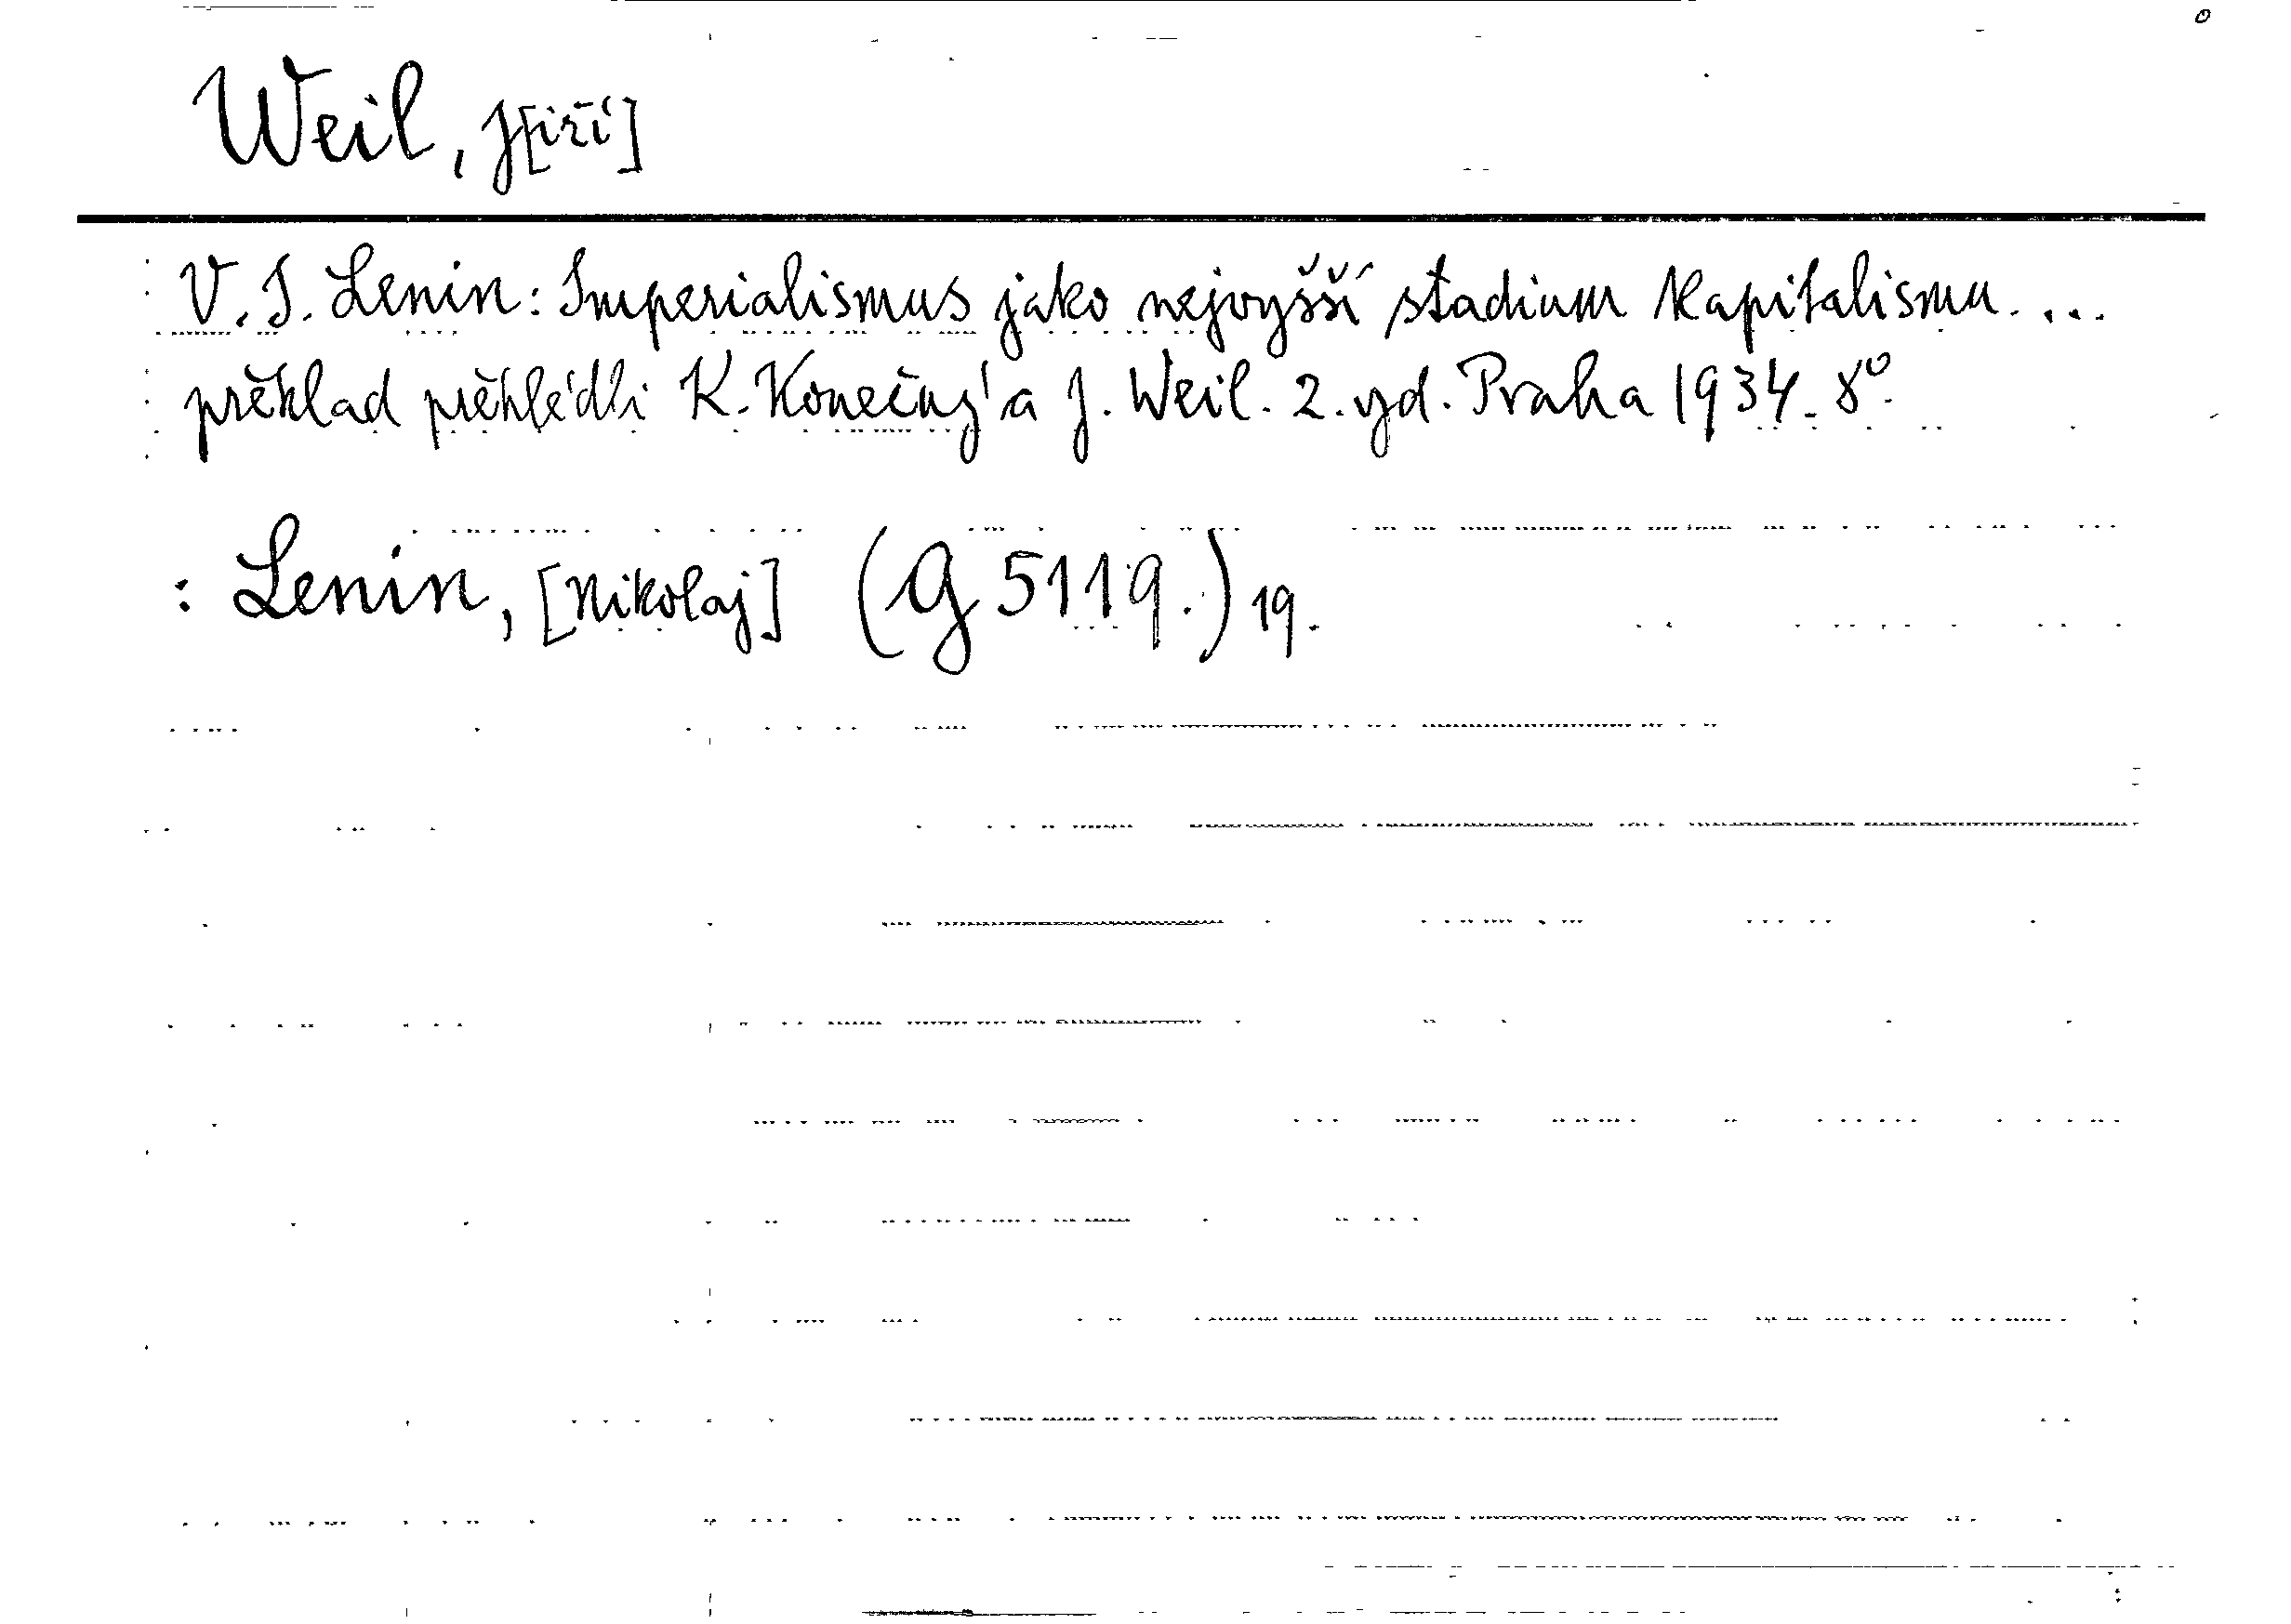 Weil, J[iří]
V. I. Lenin: Imperialismus jako nejvyšší stadium kapitalismu...
překlad přehlédli K. Konečný a J. Weil. 2. yd. Praha 1934. 8º.
: Lenin, [Nikolaj] (G 5119.) 19.